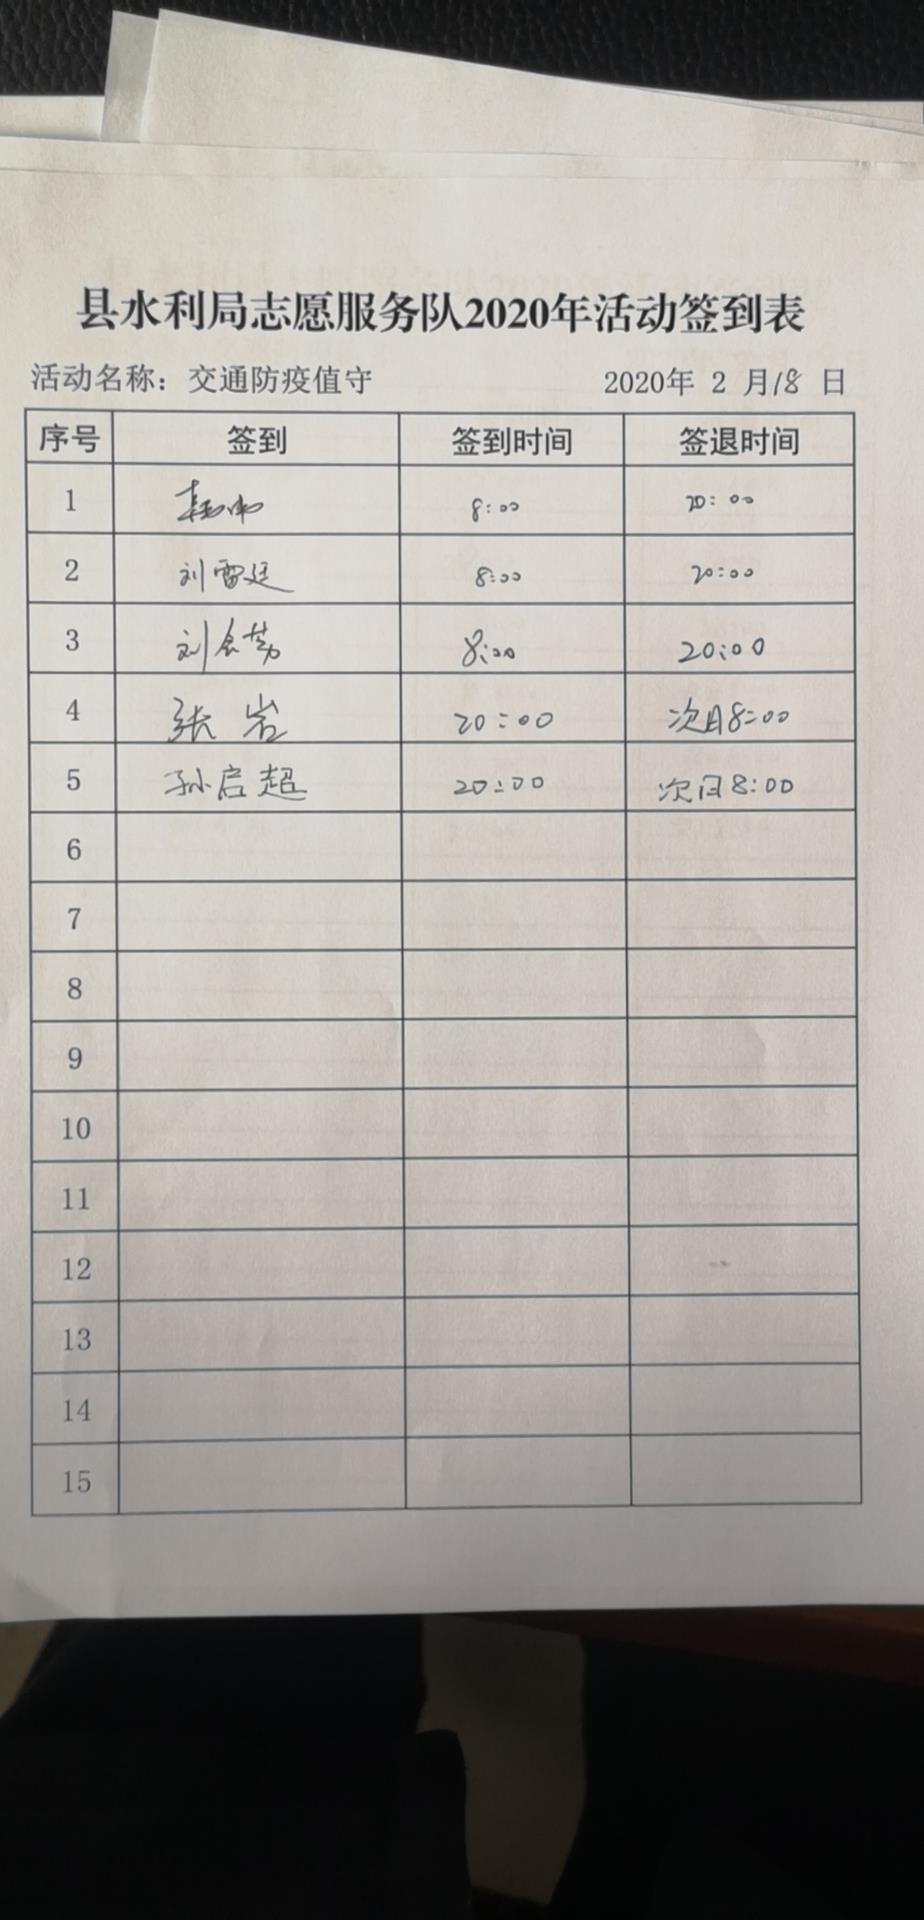 县水利局志愿服务队2020年活动签到表
活动名称：交通防疫值守 2020年 2 月18 日
序号 签到 签到时间 签退时间
1 8:00 20:00
2 刘雷廷 8:00 20:00
3 刘 8:00 20:00
4 张岩 20:00 次日8:00
5 孙启超 20:00 次日8:00
6
7
8
9
10
11
12
13
14
15